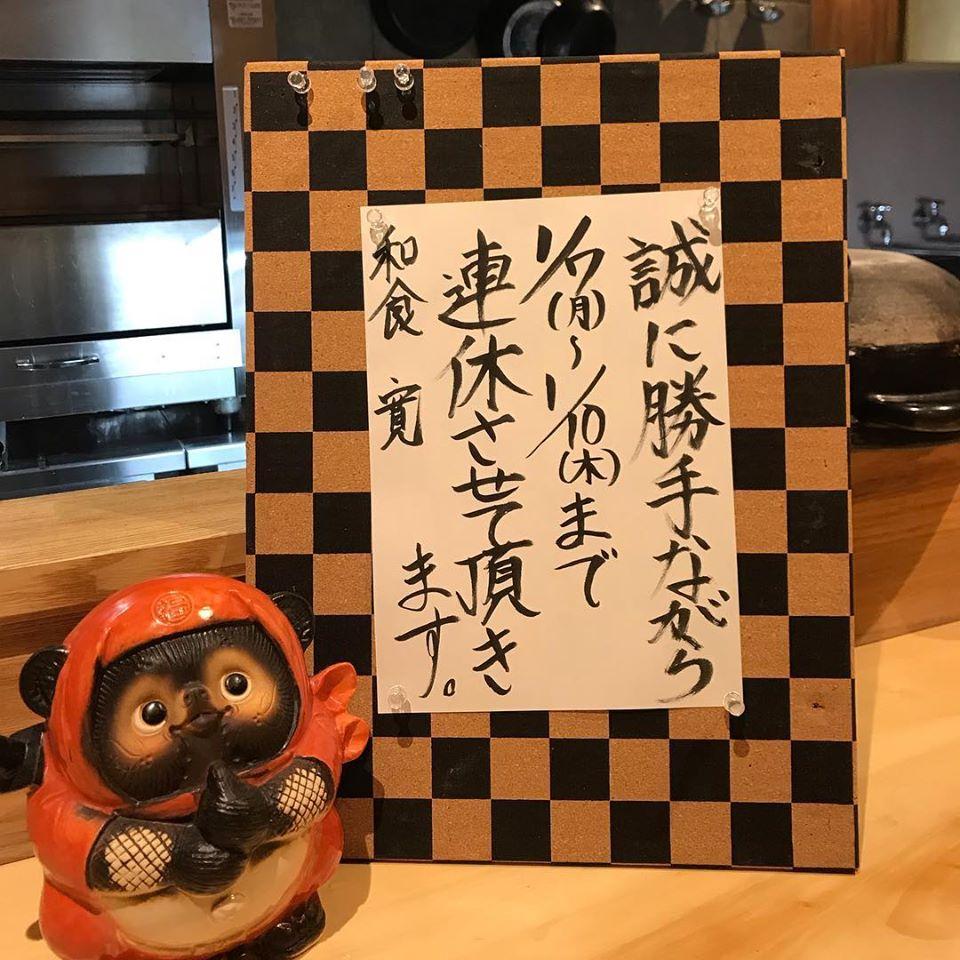 誠に勝手ながら
1/7(月)〜1/10(木)まで
連休させて頂き
ます。
和食 寛